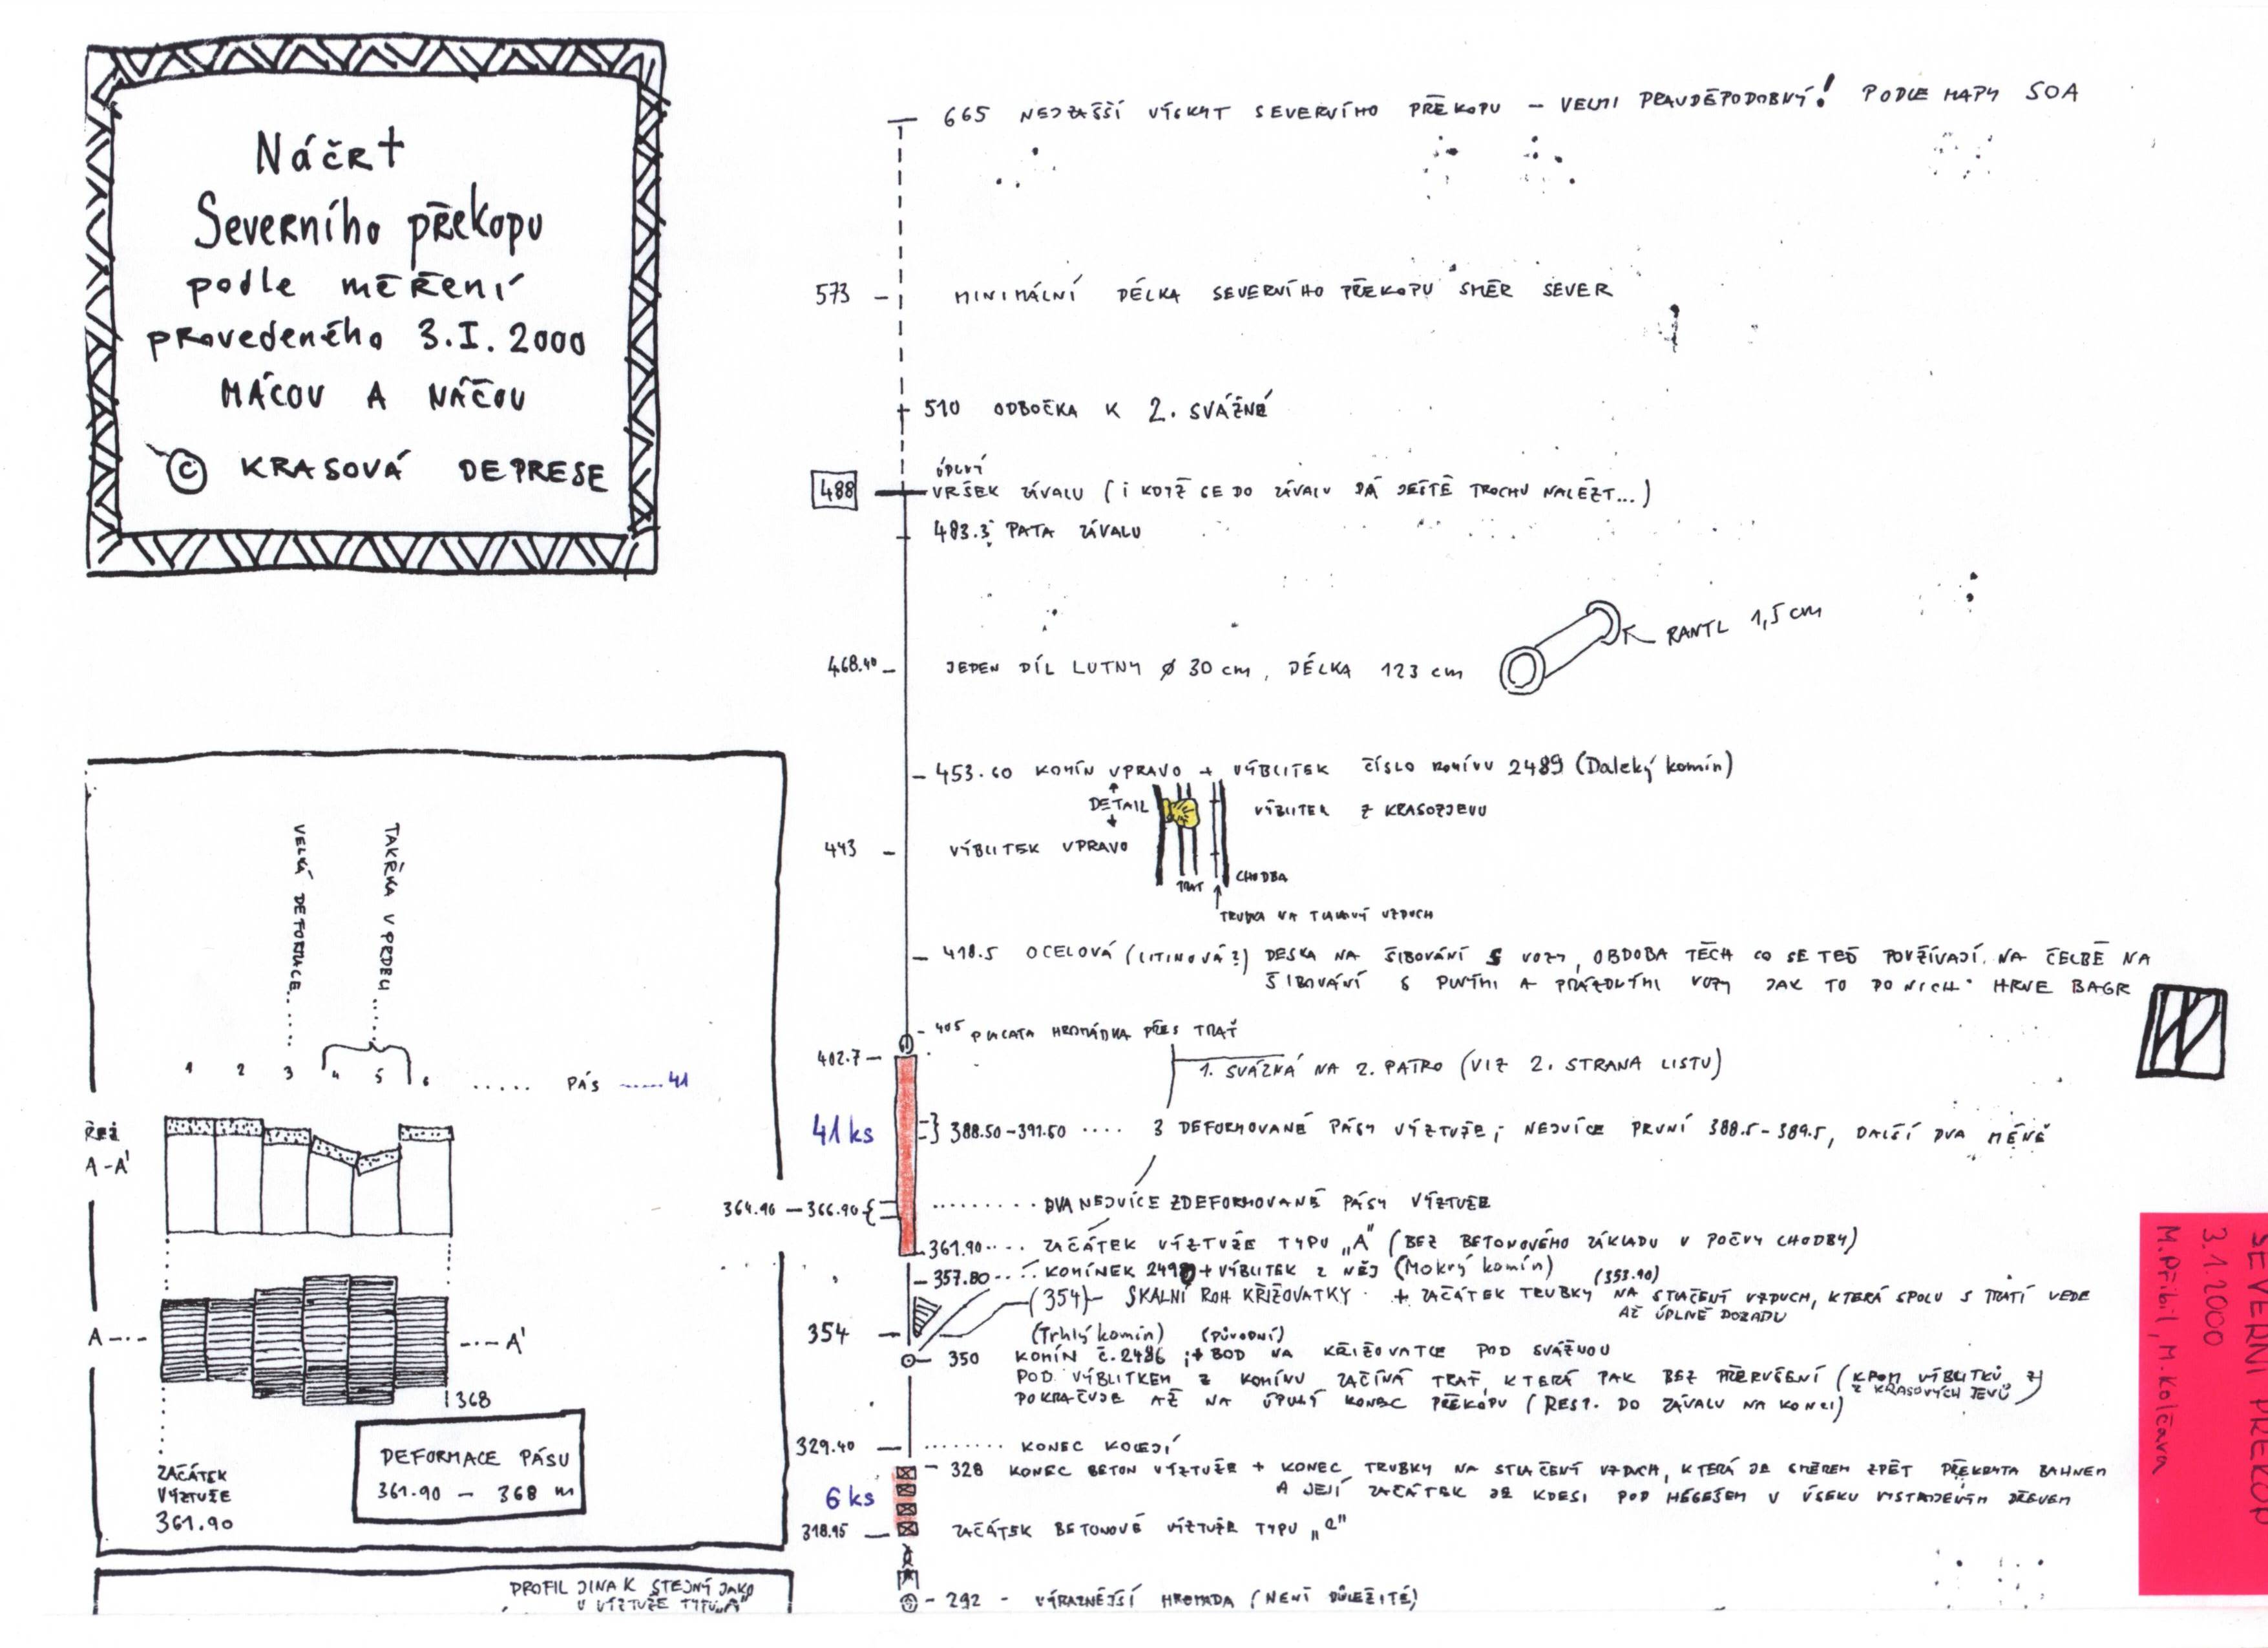 Náčrt
Severního překopu
podle měření
provedeného 3.I.2000
MÁCOU A NÁČOU
© KRASOVÁ DEPRESE
665 NEJZAŠŠÍ VÝSKYT SEVERNÍHO PŘEKOPU – VELMI PRAVDĚPODOBNÝ! PODLE MAPY SOA
573 – MINIMÁLNÍ DÉLKA SEVERNÍHO PŘEKOPU SMĚR SEVER
510 ODBOČKA K 2. SVÁŽNÉ
ÚPLNÝ
488 VRŠEK ZÁVALU (I KDYŽ SE DO ZÁVALU DÁ JEŠTĚ TROCHU NALÉZT...)
483.3 PATA ZÁVALU
468.40 – JEDEN DÍL LUTNY ø 30 cm, DÉLKA 123 cm
RANTL 1,5 cm
– 453.60 KOMÍN VPRAVO + VÝBLITEK ČÍSLO KOMÍNU 2489 (Daleký komín)
DETAIL
VÝBLITEK Z KRASOJEVU
443 – VÝBLITEK VPRAVO
TRAŤ
CHODBA
TRUBKA NA TLAKOVÝ VZDUCH
– 418.5 OCELOVÁ (LITINOVÁ?) DESKA NA ŠIBOVÁNÍ S VOZY, OBDOBA TĚCH CO SE TEĎ POUŽÍVAJÍ NA ČELBĚ NA
ŠIBOVÁNÍ S PLNÝMI A PRÁZDNÝMI VOZY JAK TO DO NICH HRNE BAGR
– 405 PLACATA HROMÁDKA PŘES TRAŤ
402.7 –
1. SVÁŽNÁ NA 2. PATRO (VIZ 2. STRANA LISTU)
41 ks
388.50–391.50 .... 3 DEFORMOVANÉ PÁSY VÝZTUŽE, NEJVÍCE PRVNÍ 388.5–389.5, DALŠÍ DVA MÉNĚ
364.90 – 366.90 ......... DVA NEJVÍCE ZDEFORMOVANÉ PÁSY VÝZTUŽE
361.90 .... ZAČÁTEK VÝZTUŽE TYPU „A" (BEZ BETONOVÉHO ZÁKLADU V POČVY CHODBY)
– 357.80 ... KOMÍNEK 2490 + VÝBLITEK Z NĚJ (Mokrý komín)
(353.90)
(354) – SKALNÍ ROH KŘIŽOVATKY + ZAČÁTEK TRUBKY NA STLAČENÝ VZDUCH, KTERÁ SPOLU S TRATÍ VEDE
AŽ ÚPLNĚ DOZADU
354 –
(Trhlý komín) (PŮVODNÍ)
350 KOMÍN č. 2486 ;+ BOD NA KŘIŽOVATCE POD SVÁŽNOU
POD VÝBLITKEM Z KOMÍNU ZAČÍNÁ TRAŤ, KTERÁ PAK BEZ PŘERUŠENÍ (KROM VÝBLITKŮ
Z KRASOVÝCH JEVŮ)
POKRAČUJE AŽ NA ÚPLNÝ KONEC PŘEKOPU (RESP. DO ZÁVALU NA KONCI)
329.40 – ........ KONEC KOLEJÍ
– 328 KONEC BETON VÝZTUŽE + KONEC TRUBKY NA STLAČENÝ VZDUCH, KTERÁ JE SMĚREM ZPĚT PŘEKRYTA BAHNEM
A JEJÍ ZAČÁTEK JE KDESI POD HÉGEŠEM V ÚSEKU VYSTROJENÝM DŘEVEM
6 ks
318.95 – ZAČÁTEK BETONOVÉ VÝZTUŽE TYPU
– 292 – VÝRAZNĚJŠÍ HROMADA (NENÍ DŮLEŽITÉ)
VELKÁ DEFORMACE
TAKŘKA V PRDELI
1 2 3 4 5 6 ..... PÁS ...... 41
ŘEZ
A-A'
A A'
368
ZAČÁTEK
VÝZTUŽE
361.90
DEFORMACE PÁSU
361.90 – 368 m
PROFIL JINAK STEJNÝ JAKO
U VÝZTUŽE TYPU „A"
SEVERNÍ PŘEKOP
3.1.2000
M.Přibil, M.Kolčava